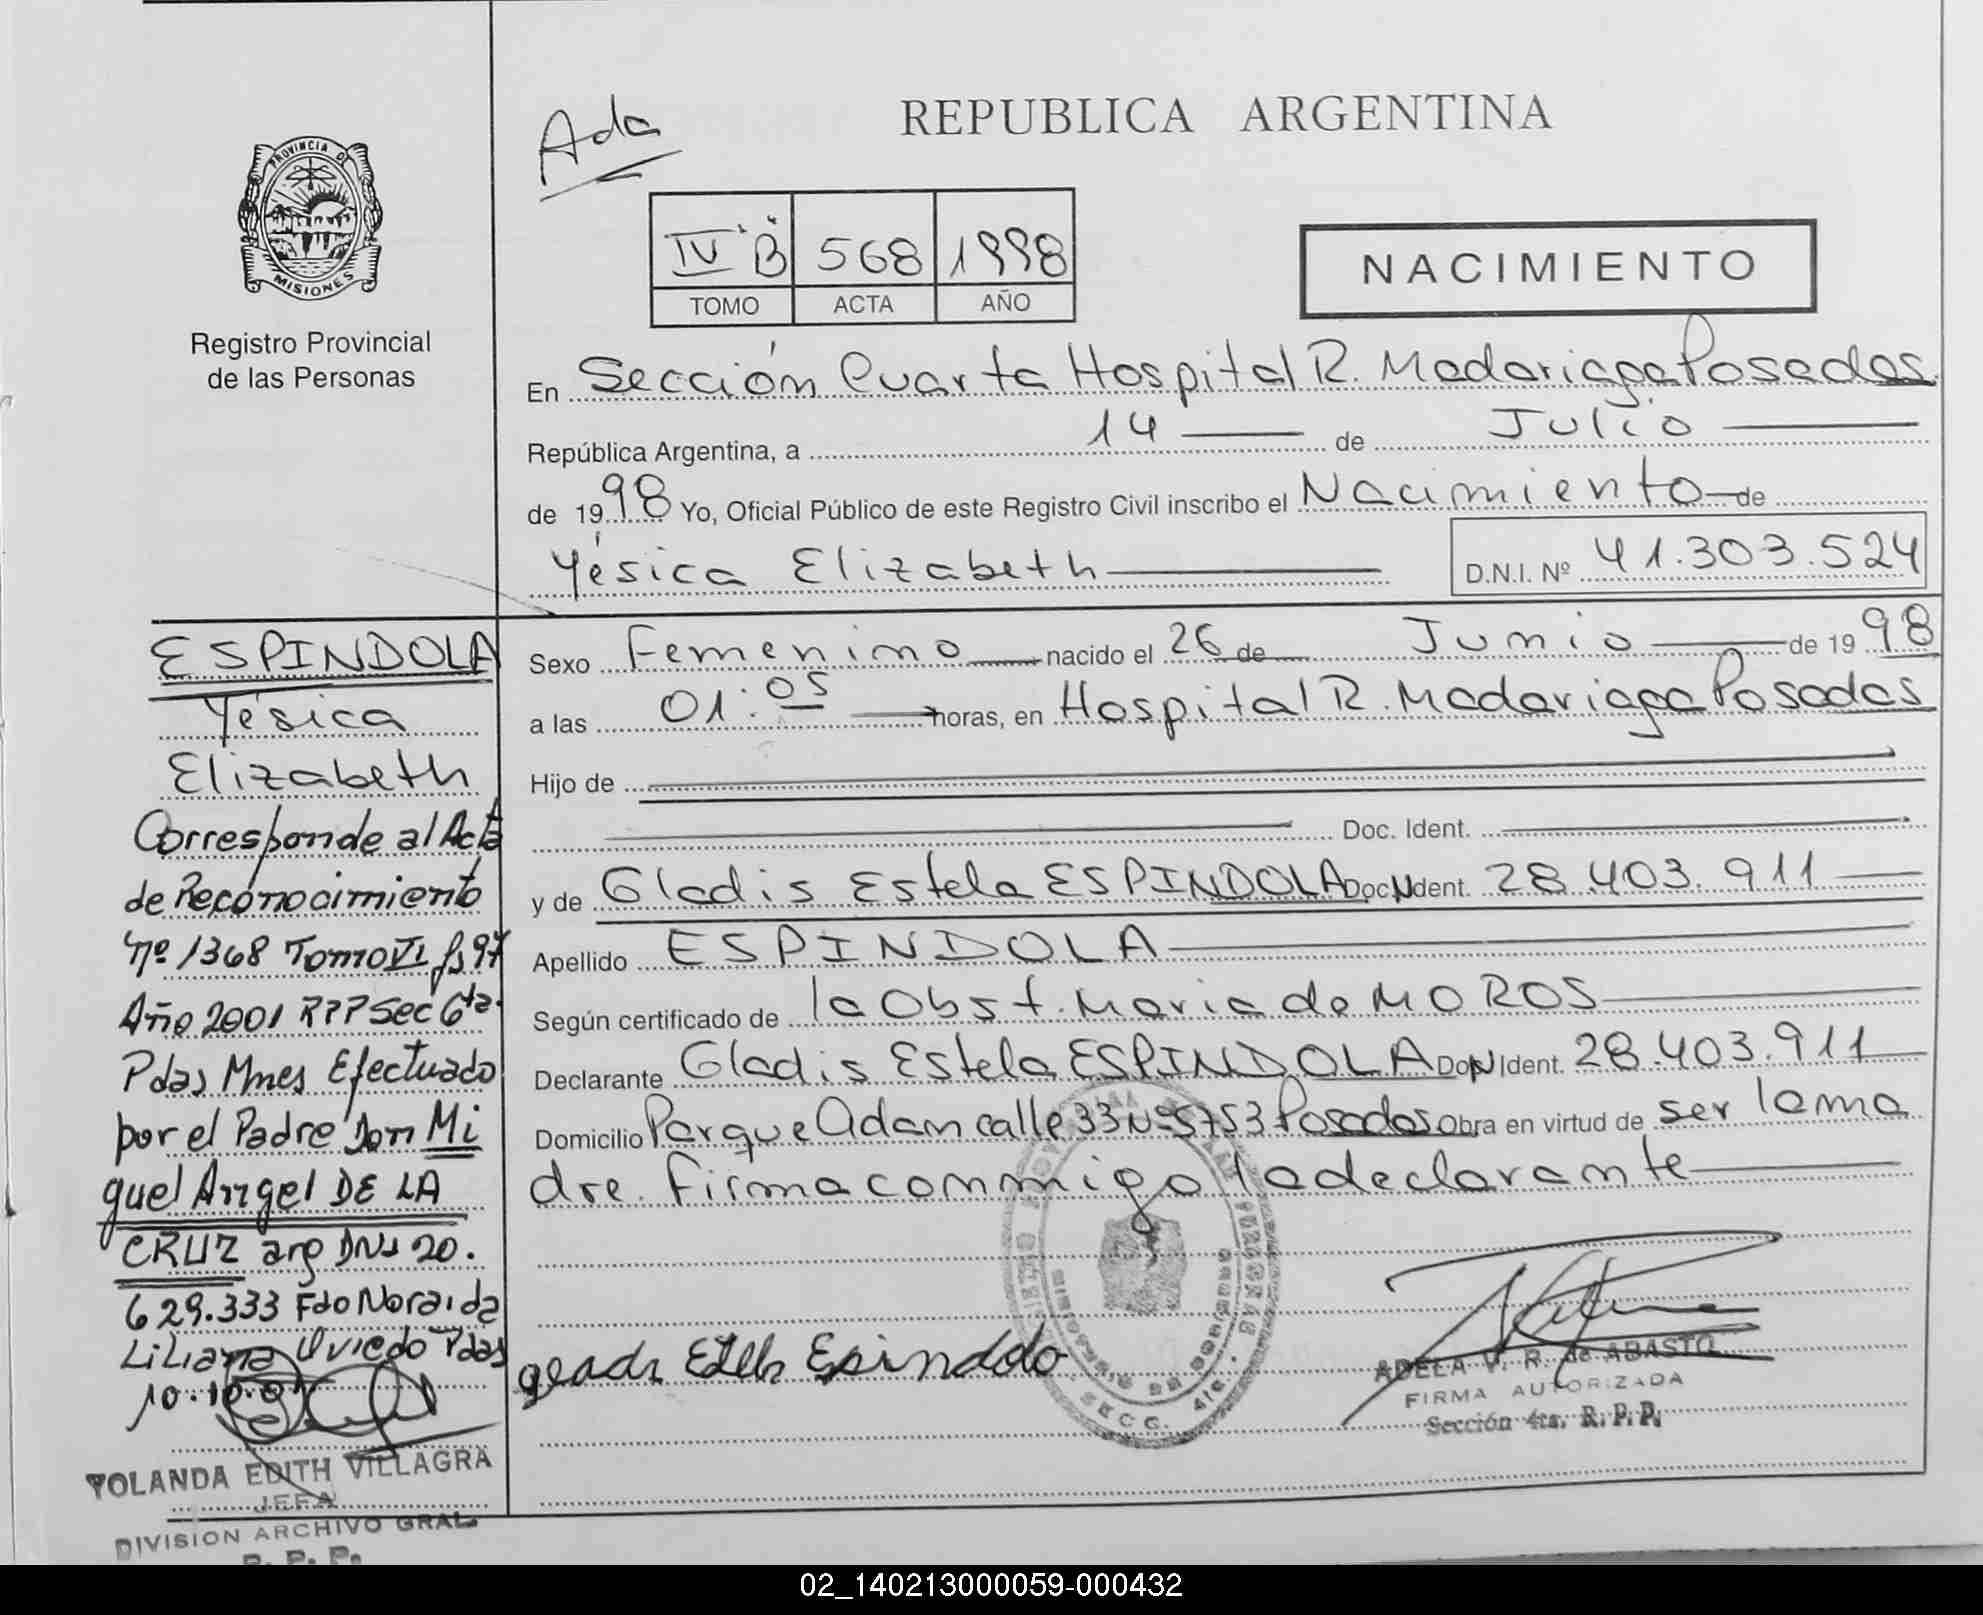 Ada
REPUBLICA ARGENTINA
PROVINCIA DE
MISIONES
Registro Provincial
de las Personas
IV "B" 568 1998
TOMO ACTA AÑO
NACIMIENTO
En Sección Cuarta Hospital R. Madariaga Posadas.
República Argentina, a 14 de Julio
de 1998 Yo, Oficial Público de este Registro Civil inscribo el Nacimiento de
Yésica Elizabeth
D.N.I. Nº 41.303.524
Sexo Femenino nacido el 26 de Junio de 1998
a las 01:05 horas, en Hospital R. Madariaga Posadas
Hijo de
Doc. Ident.
y de Gladis Estela ESPINDOLA Doc. Ident. 28.403.911
Apellido ESPINDOLA
Según certificado de la Obst. Maria de MOROS
Declarante Gladis Estela ESPINDOLA Doc. Ident. 28.403.911
Domicilio Parque Adam calle 33 Nº 5753 Posadas Obra en virtud de ser la ma
dre. Firma conmigo la declarante
ADELA V. R. de ABASTO
FIRMA AUTORIZADA
Sección 4ta. R. P. P.
SECC. 4ta.
ESPINDOLA
Yésica
Elizabeth
Corresponde al Acta
de Reconocimiento
nº 1368 Tomo VI fs 97
Año 2001 RPP Sec 6ta.
Pdas Mnes Efectuado
por el Padre Don Mi
guel Angel DE LA
CRUZ arg DNI 20.
629.333 Fdo Noraida
Liliana Oviedo Pdas
YOLANDA EDITH VILLAGRA
JEFA
DIVISION ARCHIVO GRAL.
R. P. P.
02_140213000059-000432